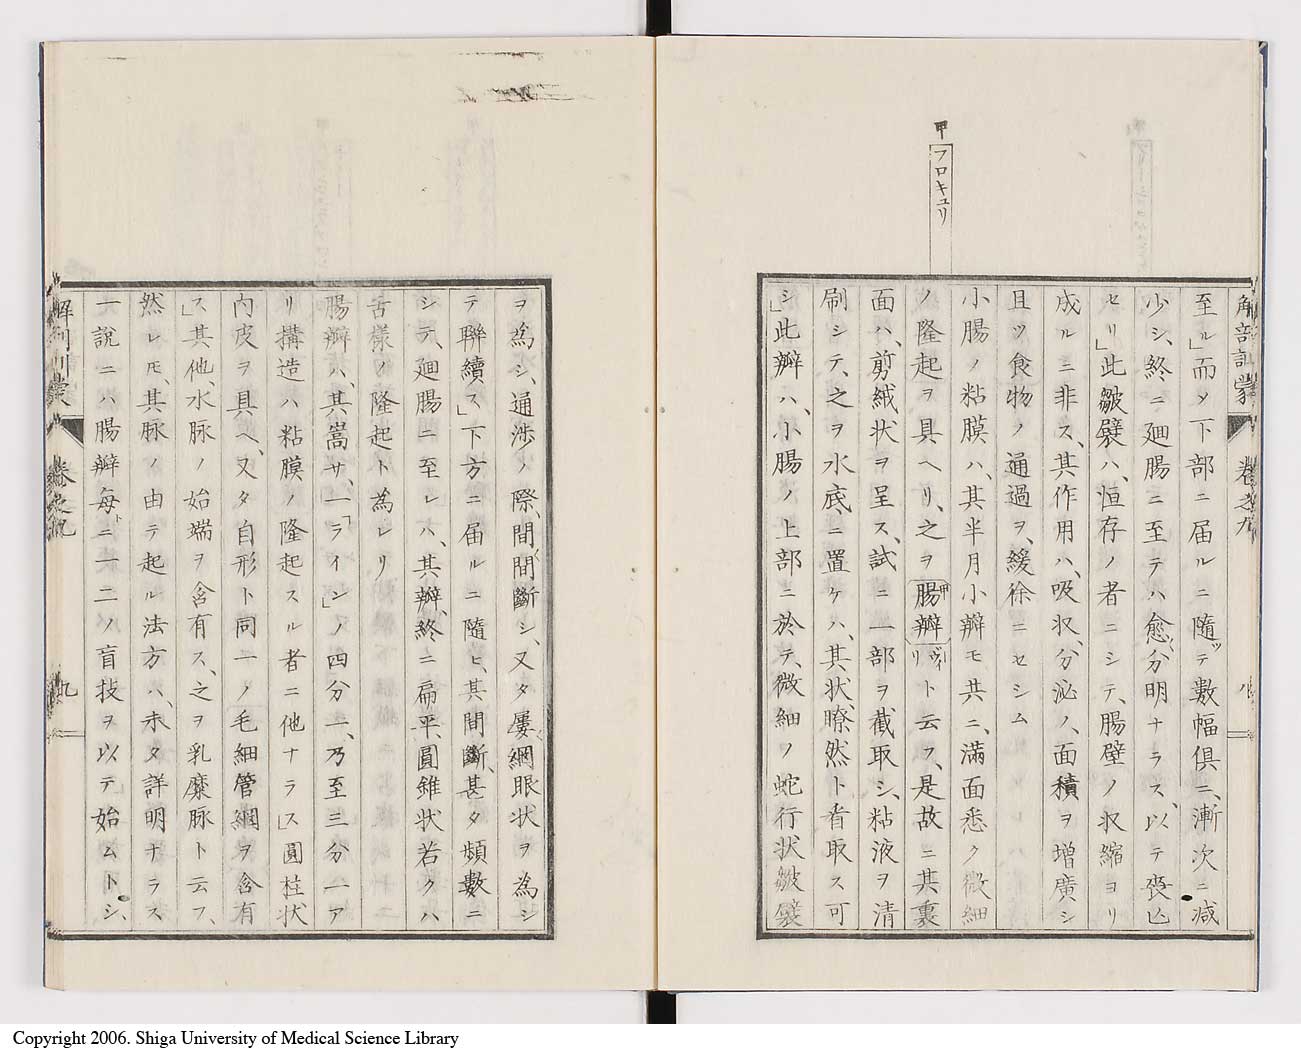 甲
フロキュリ
解剖訓蒙
卷之九
八
至ル」而〆下部ニ届ルニ隨ッテ數幅俱ニ、漸次ニ減
少シ、終ニ廻腸ニ至テハ愈〻分明ナラス、以テ喪亾
セリ」此皺襞ハ、恒存ノ者ニシテ、腸壁ノ収縮ヨリ
成ルニ非ス、其作用ハ、吸収、分泌ノ、面積ヲ增廣シ
且ツ食物ノ通過ヲ、緩徐ニセシム
小腸ノ粘膜ハ、其半月小瓣モ共ニ、滿面悉ク微細
ノ隆起ヲ具ヘリ、之ヲ甲腸瓣ヴィリト云フ、是故ニ其裏
面ハ、剪絨状ヲ呈ス、試ニ一部ヲ截取シ、粘液ヲ清
刷シテ、之ヲ水底ニ置ケハ、其状、瞭然ト看取ス可
シ」此瓣ハ、小腸ノ上部ニ於テ、微細ノ蛇行状皺襞
ヲ為シ、通渉ノ際、間〻間斷シ、又タ屢〻網眼状ヲ為シ
テ聯續ス」下方ニ届ルニ隨ヒ、其間斷、甚タ頻數ニ
シテ、廻腸ニ至レハ、其瓣、終ニ扁平、圓錐状若クハ
舌樣ノ隆起ト為レリ
腸瓣ハ、其嵩サ、一「ライン」ノ四分一、乃至三分一ア
リ搆造ハ粘膜ノ隆起スル者ニ他ナラス」圓柱状
內皮ヲ具ヘ、又タ自形ト同一ノ毛細管網ヲ含有
ス」其他、水脉ノ始端ヲ含有ス、之ヲ乳糜脉ト云フ、
然レモ、其脉ノ由テ起ル法方ハ、未タ詳明ナラス
一說ニハ腸瓣每トニ一二ノ盲技ヲ以テ始ムトシ、
解剖訓蒙
卷之九
九